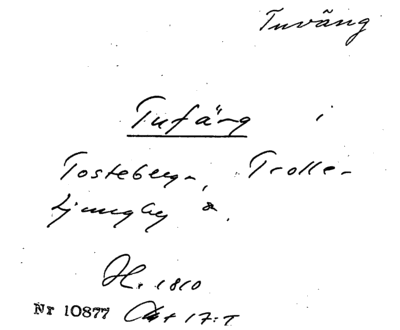 Tuväng
Tufäng i
Tosteberga, Trolle-
Ljungby s.
H. 1810
Nr 10877 Akt 17:I